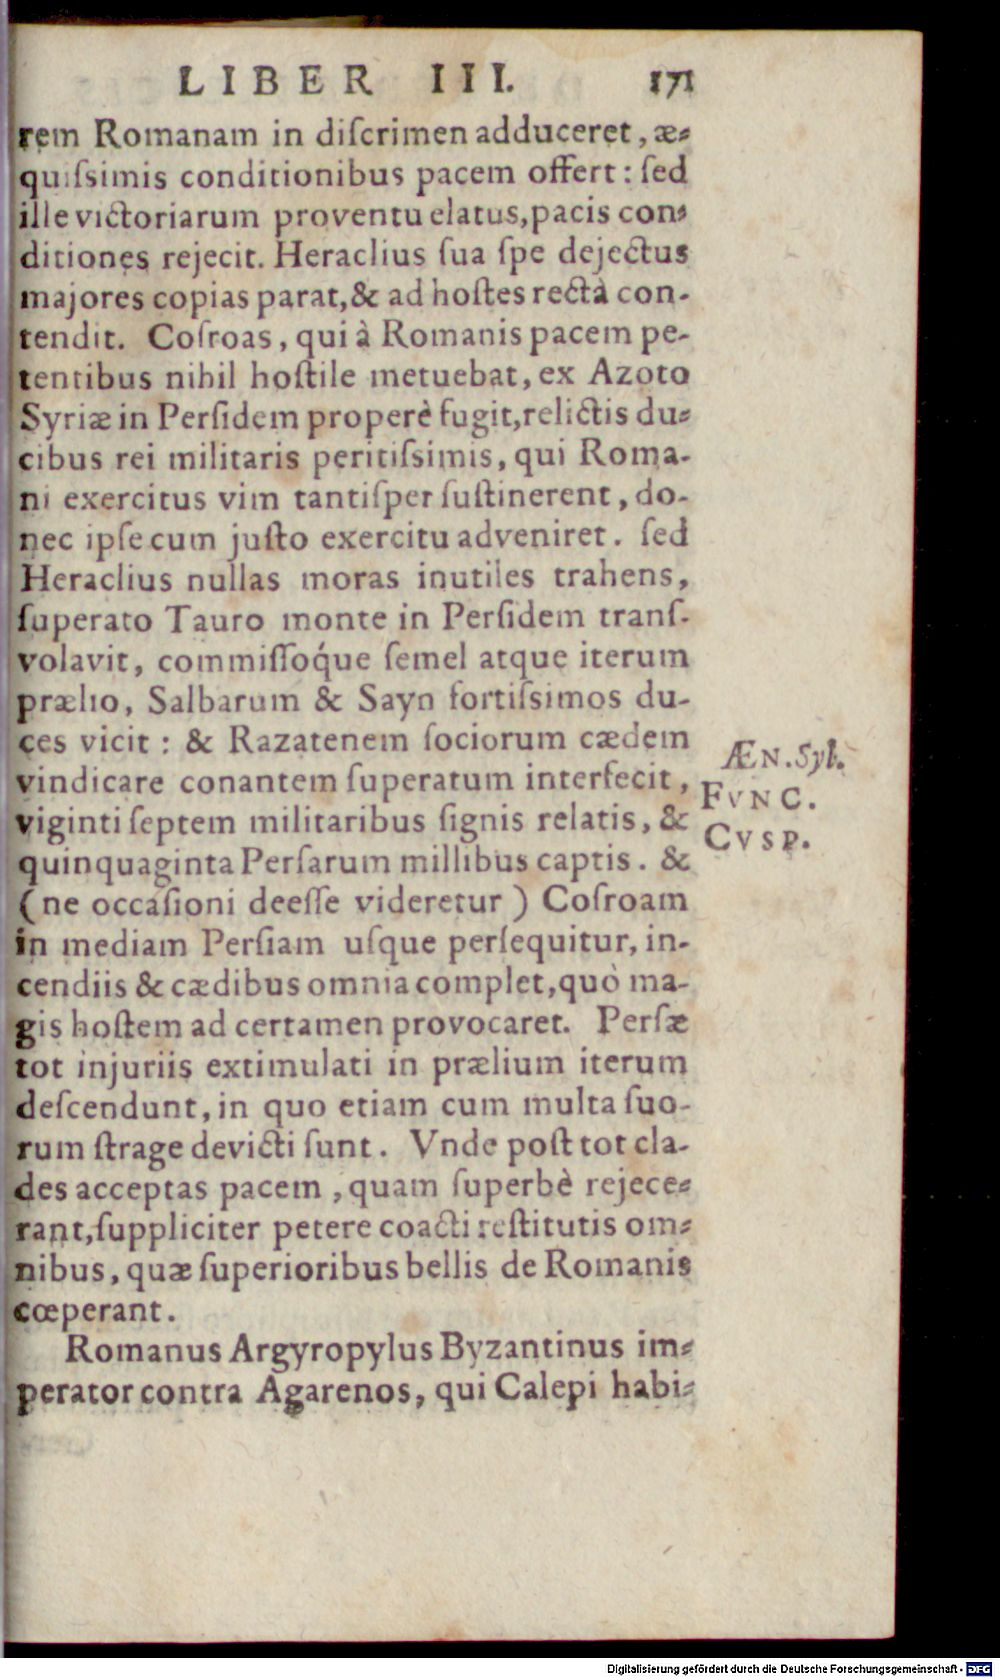 LIBER III. 171
rem Romanam in diſcrimen adduceret, æ-
quiſsimis conditionibus pacem offert: ſed
ille victoriarum proventu elatus, pacis con-
ditiones rejecit. Heraclius ſua ſpe dejectus
majores copias parat, & ad hoſtes rectà con-
tendit. Coſroas, qui à Romanis pacem pe-
tentibus nihil hoſtile metuebat, ex Azoto
Syriæ in Perſidem properè fugit, relictis du-
cibus rei militaris peritiſsimis, qui Roma-
ni exercitus vim tantiſper ſuſtinerent, do-
nec ipſe cum juſto exercitu adveniret. ſed
Heraclius nullas moras inutiles trahens,
ſuperato Tauro monte in Perſidem tranſ-
volavit, commiſſoq́ue ſemel atque iterum
prælio, Salbarum & Sayn fortiſsimos du-
ces vicit: & Razatenem ſociorum cædem
vindicare conantem ſuperatum interfecit,
viginti ſeptem militaribus ſignis relatis, &
quinquaginta Perſarum millibus captis. &
(ne occaſioni deeſſe videretur) Coſroam
in mediam Perſiam uſque perſequitur, in-
cendiis & cædibus omnia complet, quò ma-
gis hoſtem ad certamen provocaret. Perſæ
tot injuriis extimulati in prælium iterum
deſcendunt, in quo etiam cum multa ſuo-
rum ſtrage devicti ſunt. Vnde poſt tot cla-
des acceptas pacem, quam ſuperbè rejece-
rant, ſuppliciter petere coacti reſtitutis om-
nibus, quæ ſuperioribus bellis de Romanis
cœperant.
Romanus Argyropylus Byzantinus im-
perator contra Agarenos, qui Calepi habi-
ÆN. Syl.
FVNC.
CVSP.
Digitalisierung gefördert durch die Deutsche Forschungsgemeinschaft - DFG